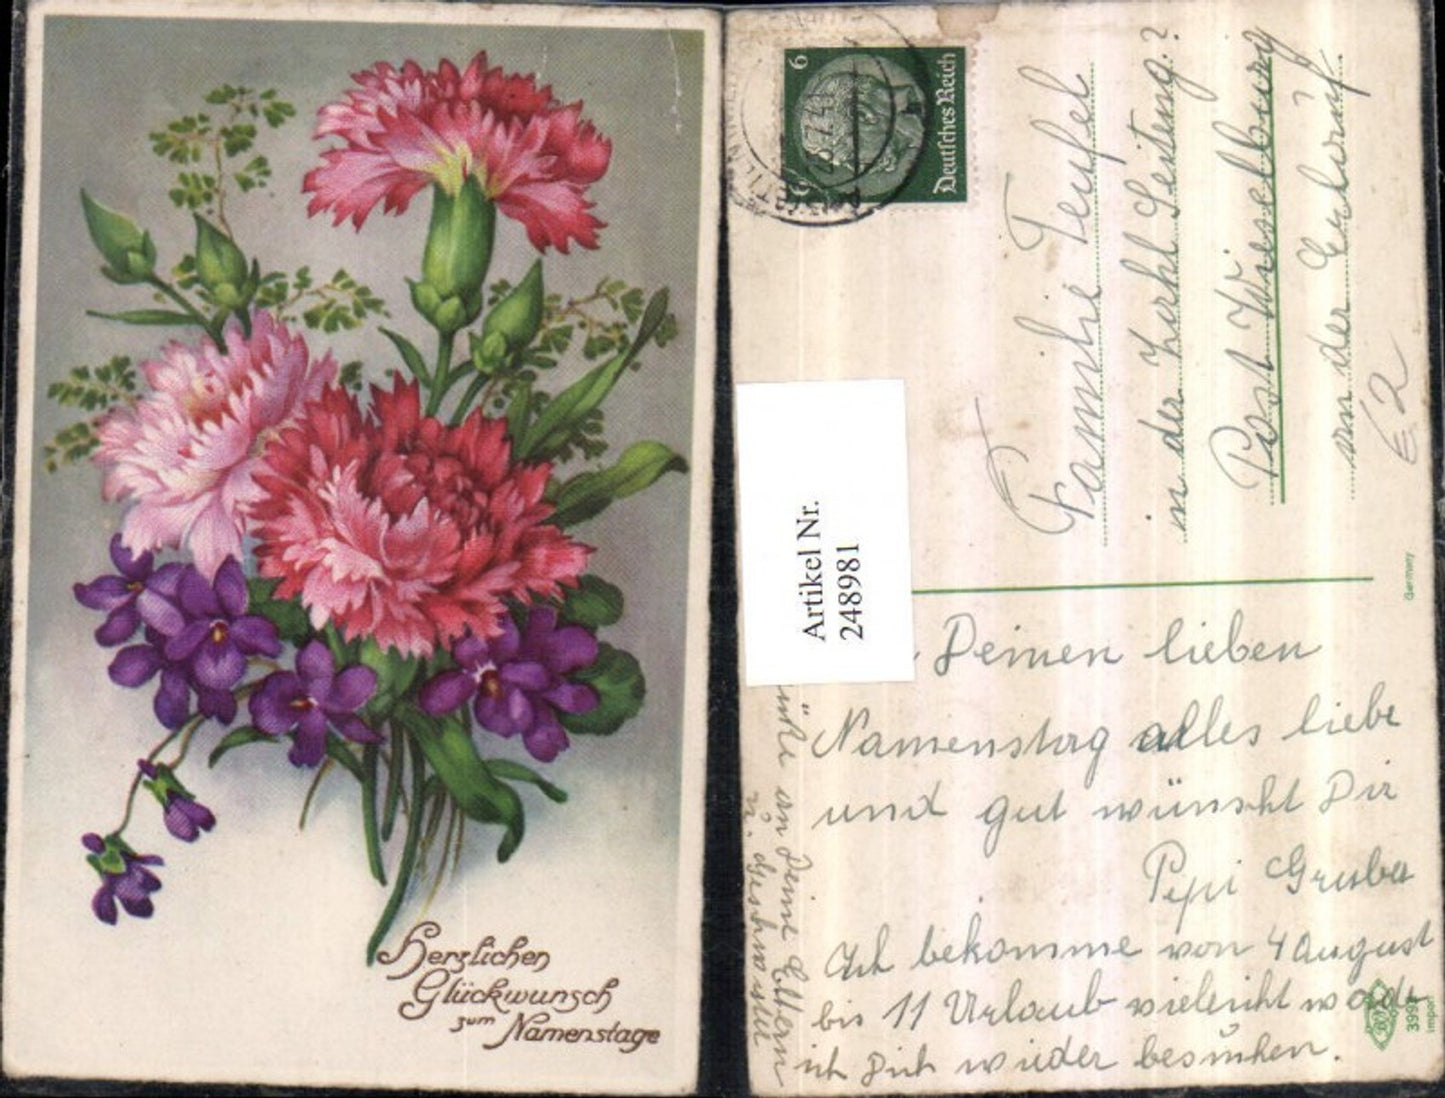 Herzlichen
Glückwunsch
zum Namenstage
6
Deutsches Reich
Familie Teufel
in der
Post Wieselburg
an der Erlauf.
€2
Artikel Nr.
248981
Germany
Deinen lieben
Namenstag alles liebe
und gut wünscht Dir
Pepi Gruber
Ich bekomme von 4 august
bis 11 Urlaub vieleicht werde
ich Dich wieder besuchen.
an Deine Eltern
u. Geschwister
Import